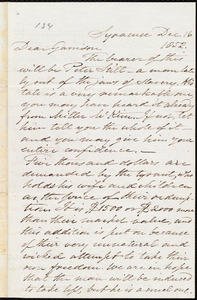 134
Syracuse Dec. 16
1852.
Dear Garrison,
The bearer of this
will be Peter Still - a man late-
ly out of the jaws of Slavery. His
tale is a very remarkable one
you may have heard it already
from Miller M'Kim. If not let
him tell you the whole of it -
and you may give him your
entire confidence. -
Five thousand dollars are
demanded by the tyrant, who
holds his wife and children
as the price of their redemp-
tion. It is $1500 or $2000 more
than their market value, and
this addition is put on because
of their very unnatural and
wicked attempt to take their
own freedom. We are in hopes
that the man will be induced
to take less, but he is a